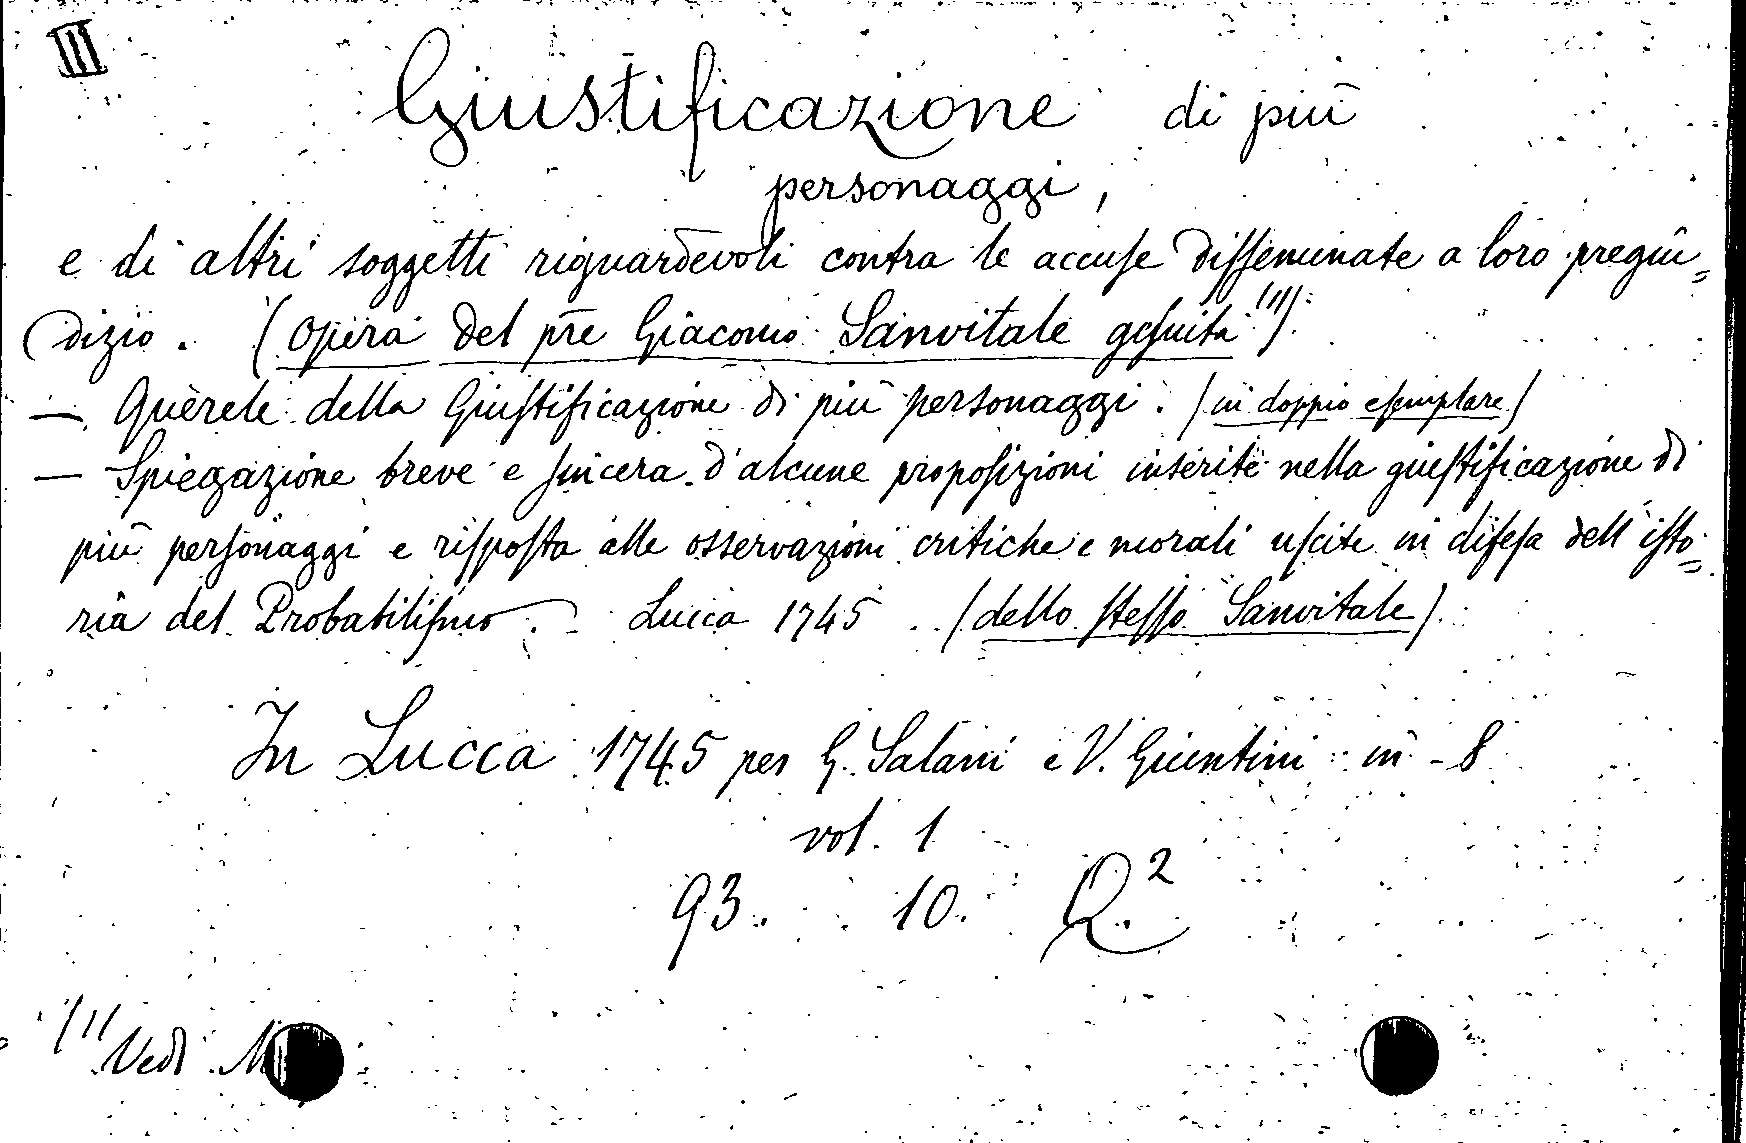 III
Giustificazione di più
personaggi,
e di altri soggetti riguardevoli contra le accuse disseminate a loro pregiu=
dizio. (opera del pre Giacomo Sanvitale gesuita (1))
— Querele della Giustificazione di più personaggi. (in doppio esemplare)
— Spiegazione breve e sincera d'alcune proposizioni inserite nella giustificazione di
più personaggi e risposta alle osservazioni critiche e morali uscite in difesa dell'isto=
ria del Probabilismo. Lucca 1745. (dello stesso Sanvitale).
In Lucca 1745 per G. Salani e V. Giuntini in-8
vol. 1
93. 10. Q.2
(1) Vedi